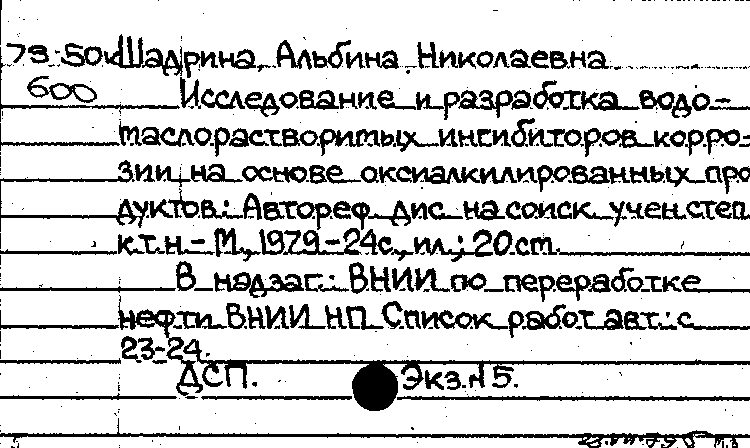 79-50д Шадрина, Альбина Николаевна.
600 Исследование и разработка водо-
маслорастворимых ингибиторов корро-
зии на основе оксиалкилированных про
дуктов.: Автореф. дис. на соиск. учен. степ.
к.т.н.- М., 1979.-24с., ил.; 20 см.
В надзаг.: ВНИИ по переработке
нефти ВНИИ НП. Список работ авт.: с.
23-24.
ДСП. Экз.№5.